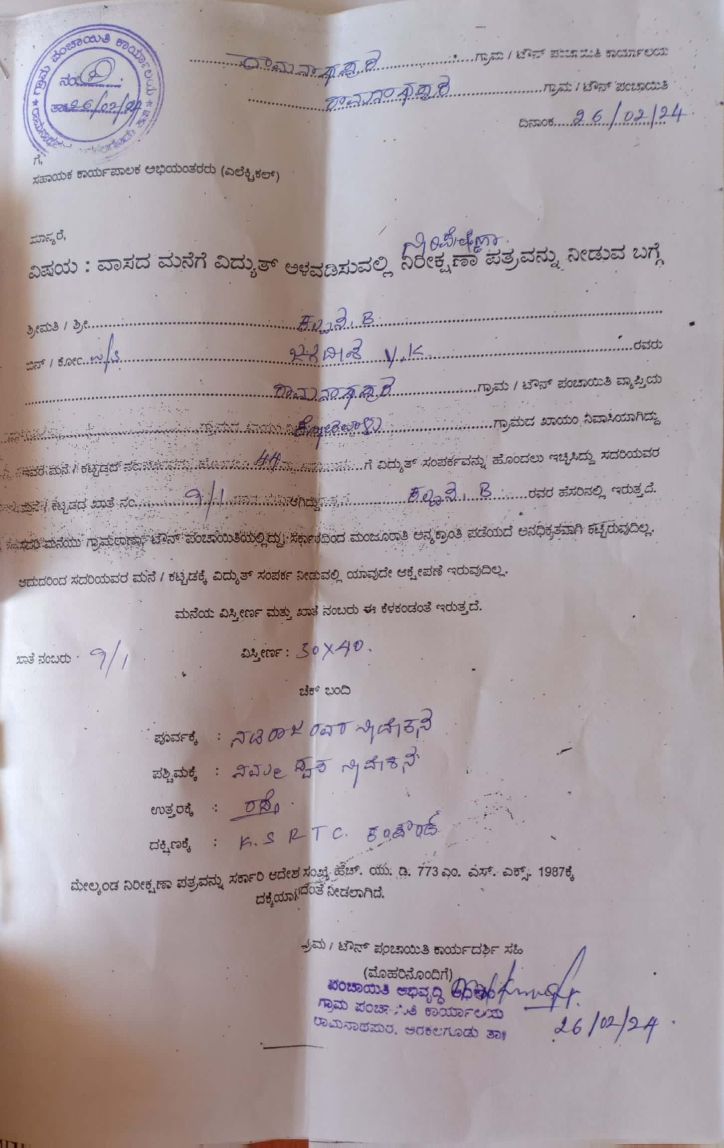 ಗ್ರಾಮ ಪಂಚಾಯಿತಿ ಕಾರ್ಯಾಲಯ
ನಂ
ತಾ 26/02/24
ರಾಮನಾಥಪುರ ಗ್ರಾಮ / ಟೌನ್ ಪಂಚಾಯಿತಿ ಕಾರ್ಯಾಲಯ
ರಾಮನಾಥಪುರ ಗ್ರಾಮ / ಟೌನ್ ಪಂಚಾಯಿತಿ
ದಿನಾಂಕ 26/02/24
ಗೆ,
ಸಹಾಯಕ ಕಾರ್ಯಪಾಲಕ ಅಭಿಯಂತರರು (ಎಲೆಕ್ಟ್ರಿಕಲ್)
ಮಾನ್ಯರೆ,
ವಿಷಯ : ವಾಸದ ಮನೆಗೆ ವಿದ್ಯುತ್ ಅಳವಡಿಸುವಲ್ಲಿ ನಿರೀಕ್ಷಣಾ ಪತ್ರವನ್ನು ನೀಡುವ ಬಗ್ಗೆ
ಶ್ರೀಮತಿ / ಶ್ರೀ B
ಬಿನ್ / ಕೋಂ ಜಗದೀಶ V.K ರವರು
ರಾಮನಾಥಪುರ ಗ್ರಾಮ / ಟೌನ್ ಪಂಚಾಯಿತಿ ವ್ಯಾಪ್ತಿಯ
ಗ್ರಾಮದ ಖಾಯಂ ನಿವಾಸಿಯಾಗಿದ್ದು
ಇವರ ಮನೆ / ಕಟ್ಟಡದ ಗೆ ವಿದ್ಯುತ್ ಸಂಪರ್ಕವನ್ನು ಹೊಂದಲು ಇಚ್ಛಿಸಿದ್ದು ಸದರಿಯವರ
ಮನೆ / ಕಟ್ಟಡದ ಖಾತೆ ನಂ 9/1 ಆಗಿದ್ದು B ರವರ ಹೆಸರಿನಲ್ಲಿ ಇರುತ್ತದೆ.
ಸದರಿ ಮನೆಯು ಗ್ರಾಮಠಾಣಾ / ಟೌನ್ ಪಂಚಾಯಿತಿಯಲ್ಲಿದ್ದು ಸರ್ಕಾರದಿಂದ ಮಂಜೂರಾತಿ ಅನ್ಯಕ್ರಾಂತಿ ಪಡೆಯದೆ ಅನಧಿಕೃತವಾಗಿ ಕಟ್ಟಿರುವುದಿಲ್ಲ.
ಆದುದರಿಂದ ಸದರಿಯವರ ಮನೆ / ಕಟ್ಟಡಕ್ಕೆ ವಿದ್ಯುತ್ ಸಂಪರ್ಕ ನೀಡುವಲ್ಲಿ ಯಾವುದೇ ಆಕ್ಷೇಪಣೆ ಇರುವುದಿಲ್ಲ.
ಮನೆಯ ವಿಸ್ತೀರ್ಣ ಮತ್ತು ಖಾತೆ ನಂಬರು ಈ ಕೆಳಕಂಡಂತೆ ಇರುತ್ತದೆ.
ಖಾತೆ ನಂಬರು 9/1 ವಿಸ್ತೀರ್ಣ : 30X40.
ಚೆಕ್ ಬಂದಿ
ಪೂರ್ವಕ್ಕೆ : ನಟರಾಜ ರವರ ನಿವೇಶನ
ಪಶ್ಚಿಮಕ್ಕೆ : ನಿವೇಶನ
ಉತ್ತರಕ್ಕೆ : ರಸ್ತೆ
ದಕ್ಷಿಣಕ್ಕೆ : K.S R T C. ಕಂಪೌಂಡ್
ಮೇಲ್ಕಂಡ ನಿರೀಕ್ಷಣಾ ಪತ್ರವನ್ನು ಸರ್ಕಾರಿ ಆದೇಶ ಸಂಖ್ಯೆ ಹೆಚ್. ಯು. ಡಿ. 773 ಎಂ. ಎಸ್. ಎಕ್ಸ್. 1987ಕ್ಕೆ
ನೀಡಲಾಗಿದೆ.
ಗ್ರಾಮ / ಟೌನ್ ಪಂಚಾಯಿತಿ ಕಾರ್ಯದರ್ಶಿ ಸಹಿ
(ಮೊಹರಿನೊಂದಿಗೆ)
ಪಂಚಾಯಿತಿ ಅಭಿವೃದ್ಧಿ
ಗ್ರಾಮ ಪಂಚಾಯಿತಿ ಕಾರ್ಯಾಲಯ
ರಾಮನಾಥಪುರ, ಅರಕಲಗೂಡು ತಾ॥
26/02/24